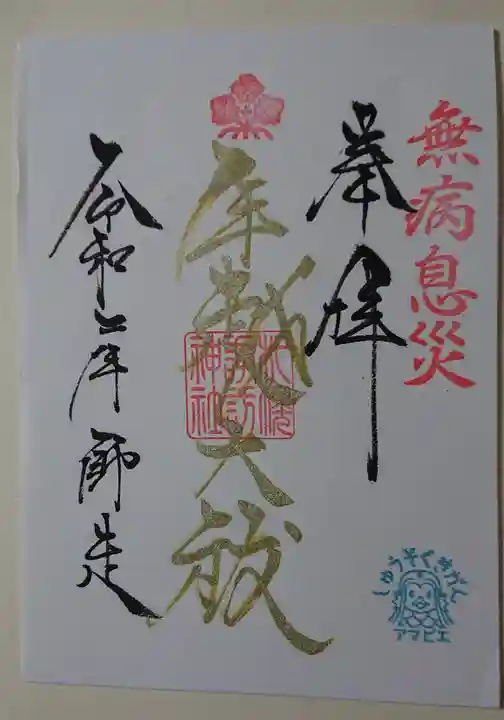 無病息災
奉拝
年越大祓
諏訪
神社
令和二年師走
しゅうそくきがん
アマビエ